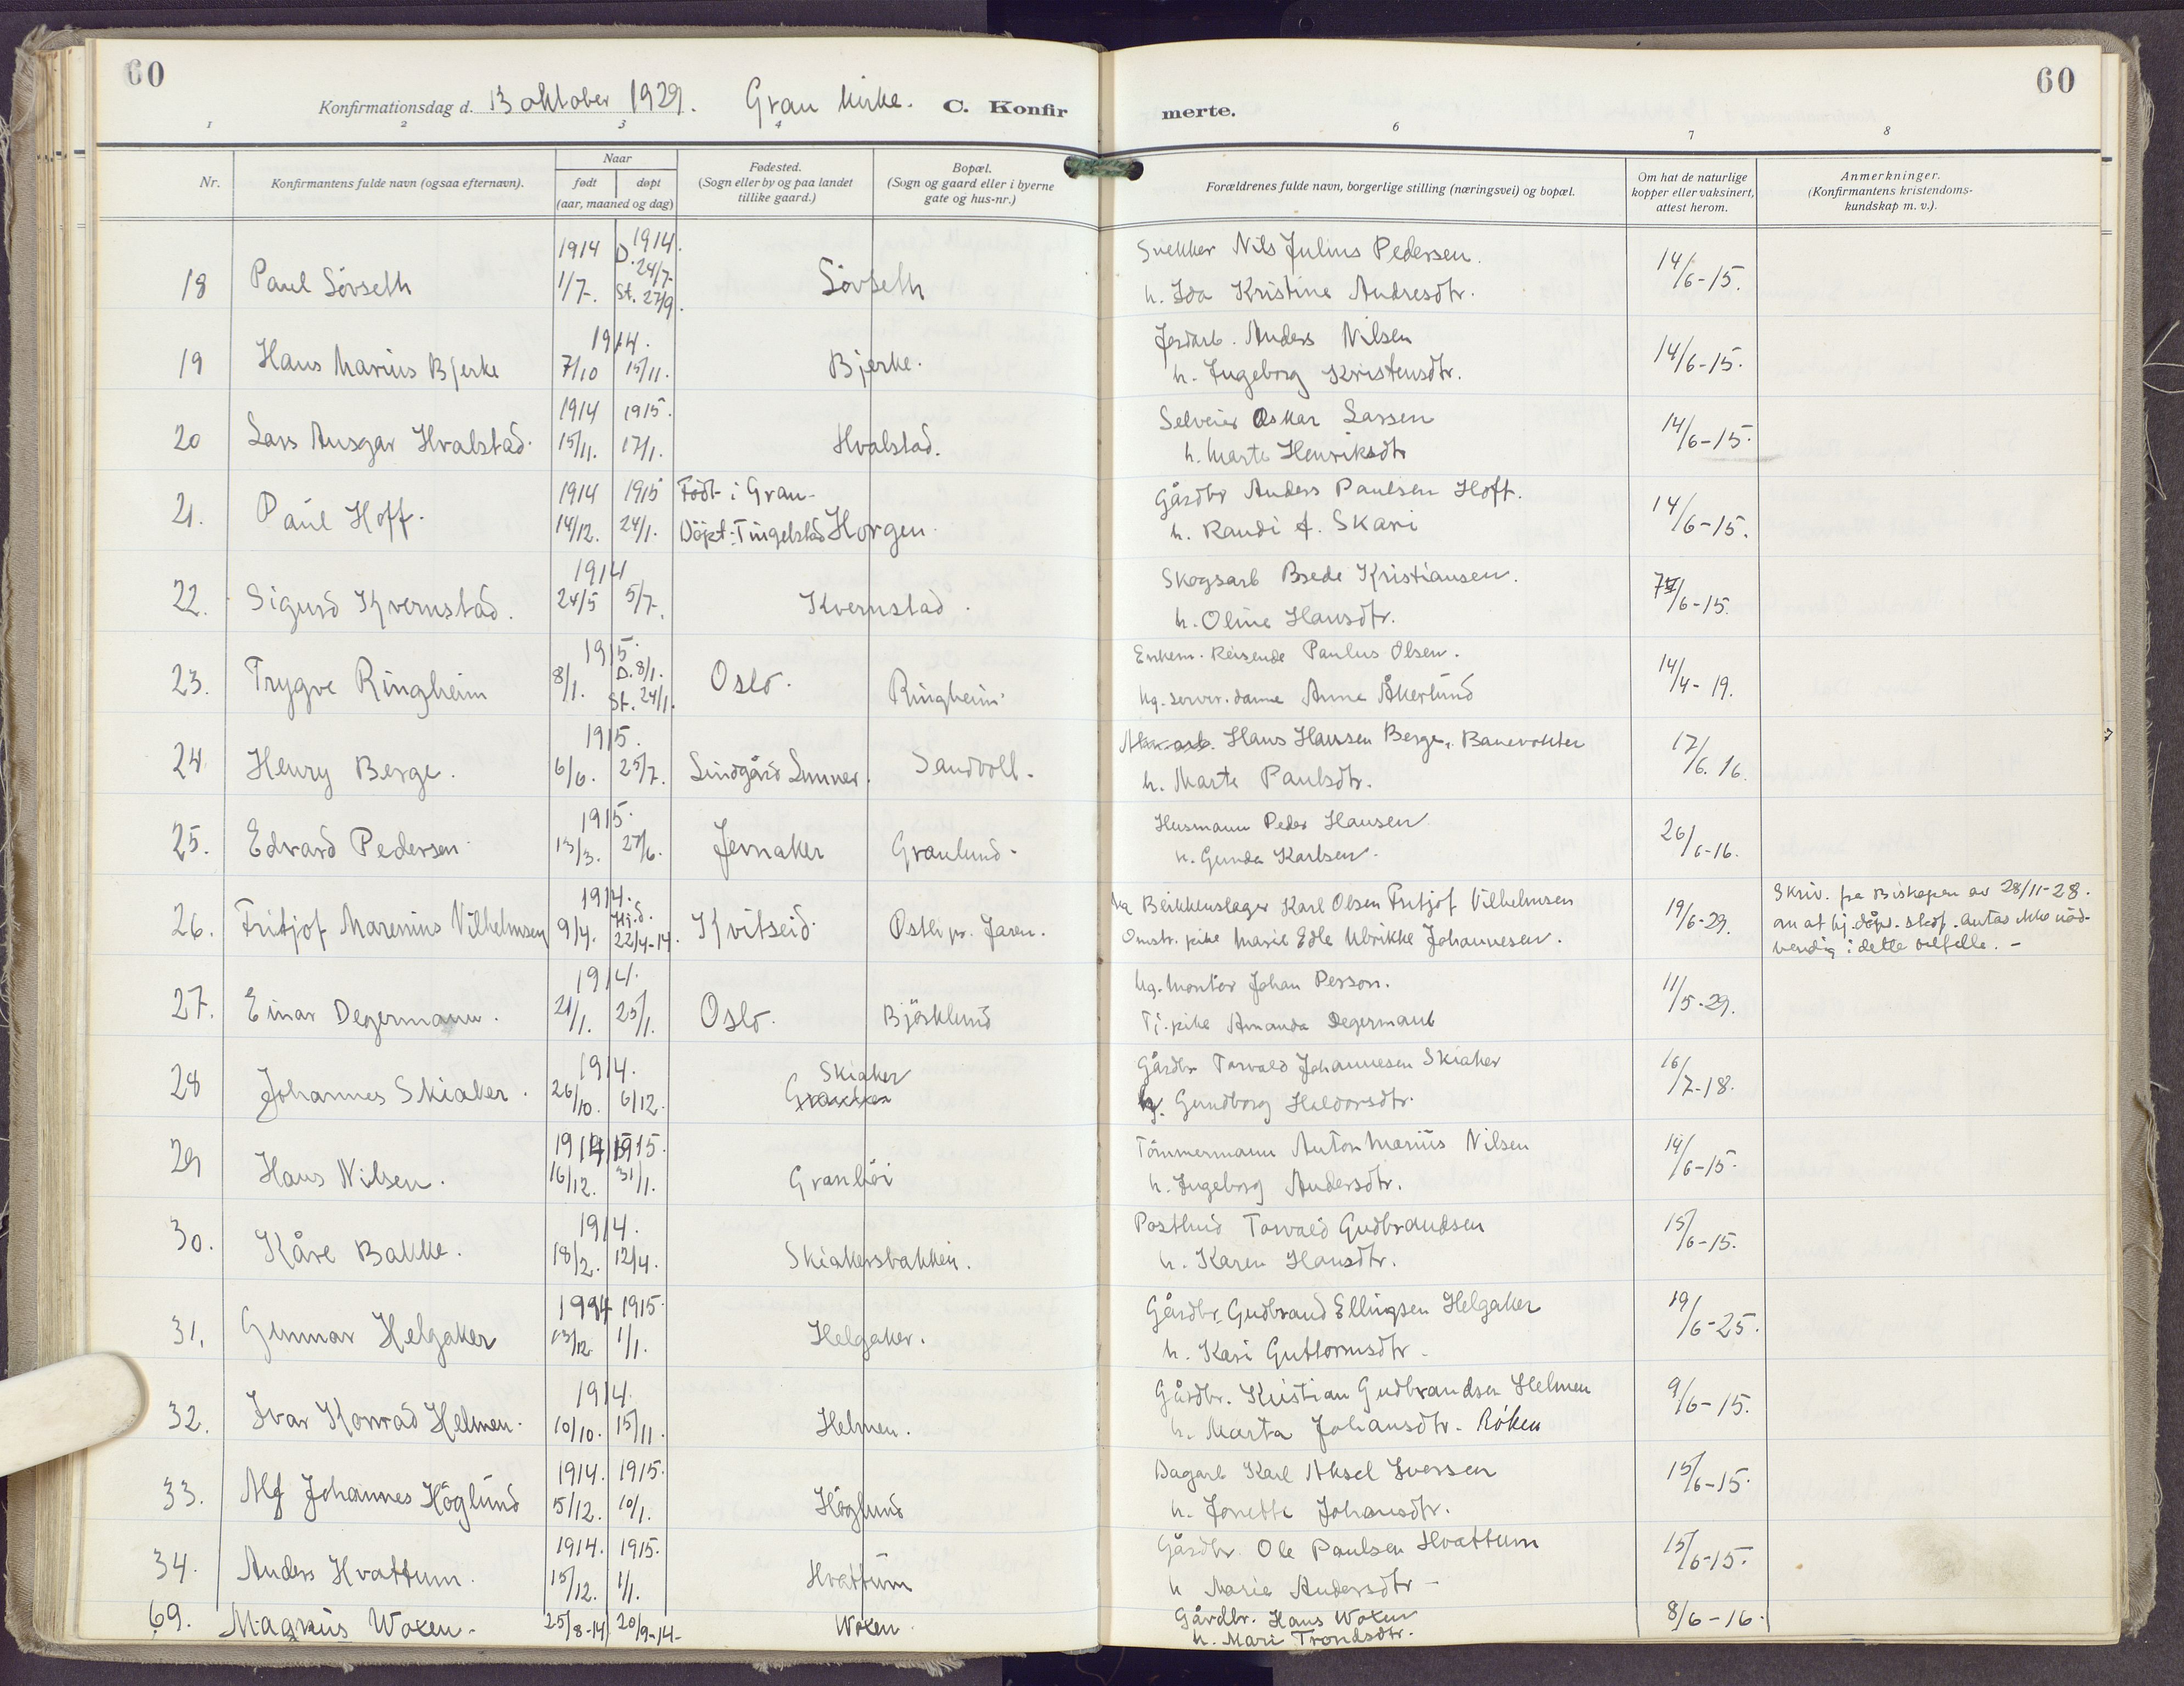 60
60
Konfirmationsdag d. 13 oktober 1929. Gran kirke. C. Konfirmerte.
1 2 3 4 6 7 8
Nr. Konfirmantens fulde navn (ogsaa efternavn). Naar født døpt (aar, maaned og dag) Fødested. (Sogn eller by og paa landet tillike gaard.) Bopæl. (Sogn og gaard eller i byerne gate og hus-nr.) Forældrenes fulde navn, borgerlige stilling (næringsvei) og bopæl. Om hat de naturlige kopper eller vaksinert, attest herom. Anmerkninger. (Konfirmantens kristendoms-kundskap m. v.).
1914 D. 1914. 24/7- Snekker Nils Julius Pedersen.
18 Paul Sörseth 1/7. St. 27/9. Sörseth h. Ida Kristine Andresdtr. 14/6-15.
1914. Jordarb. Anders Nilsen
19 Hans Marius Bjerke 7/10 15/11. Bjerke. h. Ingeborg Kristensdtr. 14/6-15.
1914 1915. Selveier Oskar Larsen
20 Lars Ansgar Hvalstad. 15/11. 17/1. Hvalstad. h. Marte Henriksdtr 14/6-15.
1914 1915 Födt i Gran- Gårdbr Anders Paulsen Hoff.
21. Paul Hoff. 14/12. 24/1. Döpt: Tingelstad Horgen. h. Randi f. Skari 14/6-15.
1914 Skogsarb Brede Kristiansen.
22. Sigurd Kvernstad. 24/5 5/7. Kvernstad. h. Oline Hansdtr. 7/6-15.
1915. D. 8/1. Enkem. Reisende Paulus Olsen.
23. Trygve Ringheim 8/1. St. 24/1. Oslo. Ringheim. Ug. server. dame Anna Åkerlund 14/4-19.
1915. Hans Hansen Berge, Banevokter
24 Henry Berge. 6/6. 25/7. Lindgård Lunner. Sandvoll. h. Marte Paulsdtr. 17/6.16.
1915. Husmann Peder Hansen
25. Edvard Pedersen. 13/3. 27/6. Jevnaker Granlund. h. Gunda Karlsen. 26/6-16.
1914. Hj.d. Ug Blikkenslager Karl Olsen Fritjof Vilhelmsen Skriv. fra Biskopen av 28/11-28.
26. Fritjof Marenius Vilhelmsen 9/4. 22/4-14. Kvitseid. Östli pr. Jaren. Omstr. pike Marie Edle Ulrikke Johannesen. 19/6-29. an at hj.dåps. stadf. antas ikke nöd-
vendig i dette tilfelle. -
1914. Ug. Montör Johan Person.
27. Einar Degermann. 21/1. 25/1. Oslo. Björklund Tj. pike Amanda Degermann 11/5-29.
1914. Skiaker Gårdbr Torvald Johannesen Skiaker
28 Johannes Skiaker. 26/10. 6/12. h. Gundborg Haldorsdtr. 16/7-18.
1914 1915. Tömmermann Anton Marius Nilsen
29 Hans Nilsen. 16/12. 31/1. Granliöi h. Ingeborg Andersdtr. 14/6-15.
1914. Postbud Torvald Gudbrandsen
30. Kåre Bakke. 18/2. 12/4. Skiakersbakken. h. Karen Hansdtr. 15/6-15.
1914 1915. Gårdbr. Gudbrand Ellingsen Helgaker
31. Gunnar Helgaker 13/12. 1/1. Helgaker. h. Kari Guttormsdtr. 19/6-25.
1914. Gårdbr. Kristian Gudbrandsen Helmen
32. Ivar Konrad Helmen. 10/10. 15/11. Helmen. h. Marta Johansdtr. Röken 9/6-15.
1914. 1915. Dagarb Karl Aksel Iversen
33. Alf Johannes Höglund 5/12. 10/1. Höglund h. Jonette Johansdtr. 15/6-15.
1914. 1915. Gårdbr. Ole Paulsen Hvattum
34. Anders Hvattum. 15/12. 1/1. Hvattum h Marie Andersdtr - 15/6-15.
69. Magnus Woxen. 25/8-14 20/9-14- Woxen. Gårdbr. Hans Woxen 8/6-16.
h. Mari Trondsdtr.